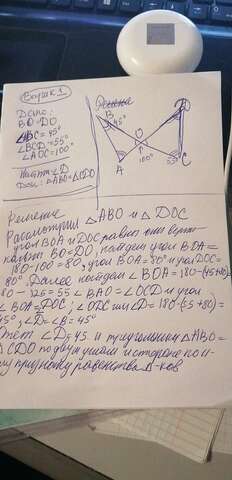 Вариант 1
Дано:
BO=DO
∠ABC=45°
∠BCD=55°
∠AOC=100°
Найти ∠D
Док: △ABO=△CDO
Решение
B
45°
D
O
100°
A
55°
C
Решение
Рассмотрим △ABO и △DOC
угол BOA и DOC равны они верти
BO=DO; найдем угол BOA=
180-100=80, угол BOA=80° и угол DOC=
80°. Далее найдем ∠BOA=180-(45+80)=
80-126=55 ∠BAO=∠OCD и угол
∠BOA=DOC; ∠ODC или ∠D=180-(55+80)=
45°; ∠D=∠B=45°
∠D=45 и треугольники △ABO=
△CDO по двум углам и стороне по
признаку равенства △-ков